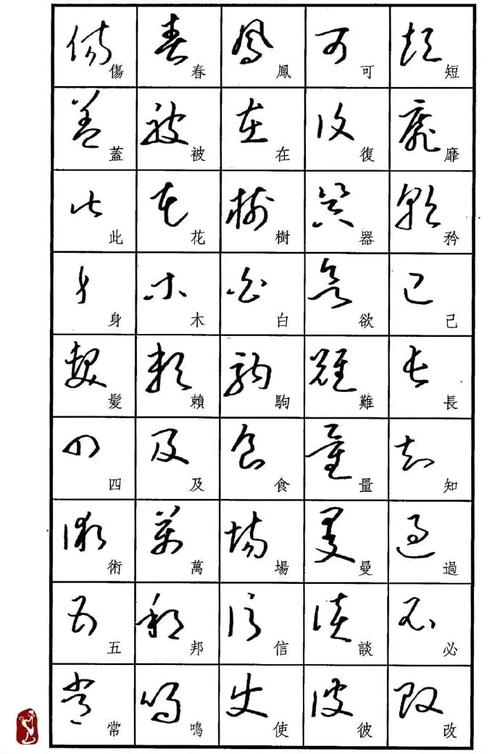 傷蓋此身髮四術五常
春被花木賴及萬邦鳴
鳳在樹白駒食場信使
可復器欲難量曼談彼
短靡矜己長知過必改